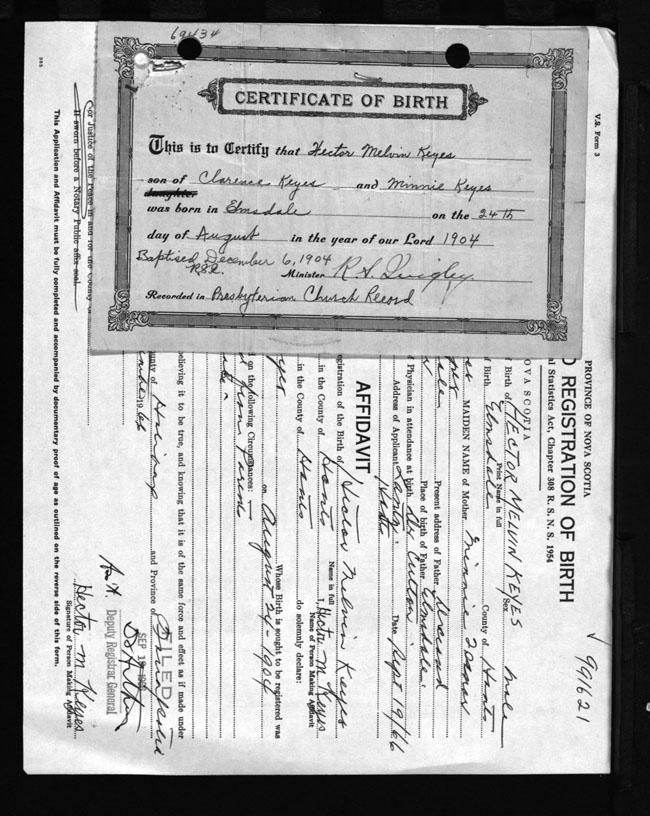 69434
CERTIFICATE OF BIRTH
This is to Certify that Hector Melvin Keyes
son of Clarence Keyes and Minnie Keyes
daughter
was born in Elmsdale on the 24th
day of August in the year of our Lord 1904
Baptised December 6, 1904
Minister R S Quigley
Recorded in Presbyterian Church Record
V.S. Form 3
991621
PROVINCE OF NOVA SCOTIA
D REGISTRATION OF BIRTH
al Statistics Act, Chapter 308 R. S. N. S. 1954
OVA SCOTIA
Birth of HECTOR MELVIN KEYES Sex Male
Print Name in full
of Birth Elmsdale County of Hants
MAIDEN NAME of Mother Minnie
Present address of Father Deceased
Place of birth of Father Elmsdale
f Physician in attendance at birth Dr
Address of Applicant Lantz Date Sept 19/66
Hants
AFFIDAVIT
egistration of the Birth of Hector Melvin Keyes
Name in full
in the County of Hants I, Hector M Keyes
Name of Person Making Affidavit
in the County of Hants do solemnly declare:
Whose Birth is sought to be registered was
on August 24 - 1904
on the following Circumstances:
elieving it to be true, and knowing that it is of the same force and effect as if made under
unty of Halifax and Province of
1966
FILED
SEP 19
Deputy Registrar General
Hector M Keyes
Signature of Person Making Affidavit
(or Justice of the Peace in and for the County
If sworn before a Notary Public affix seal
This Application and Affidavit must be fully completed and accompanied by documentary proof of age as outlined on the reverse side of this form.